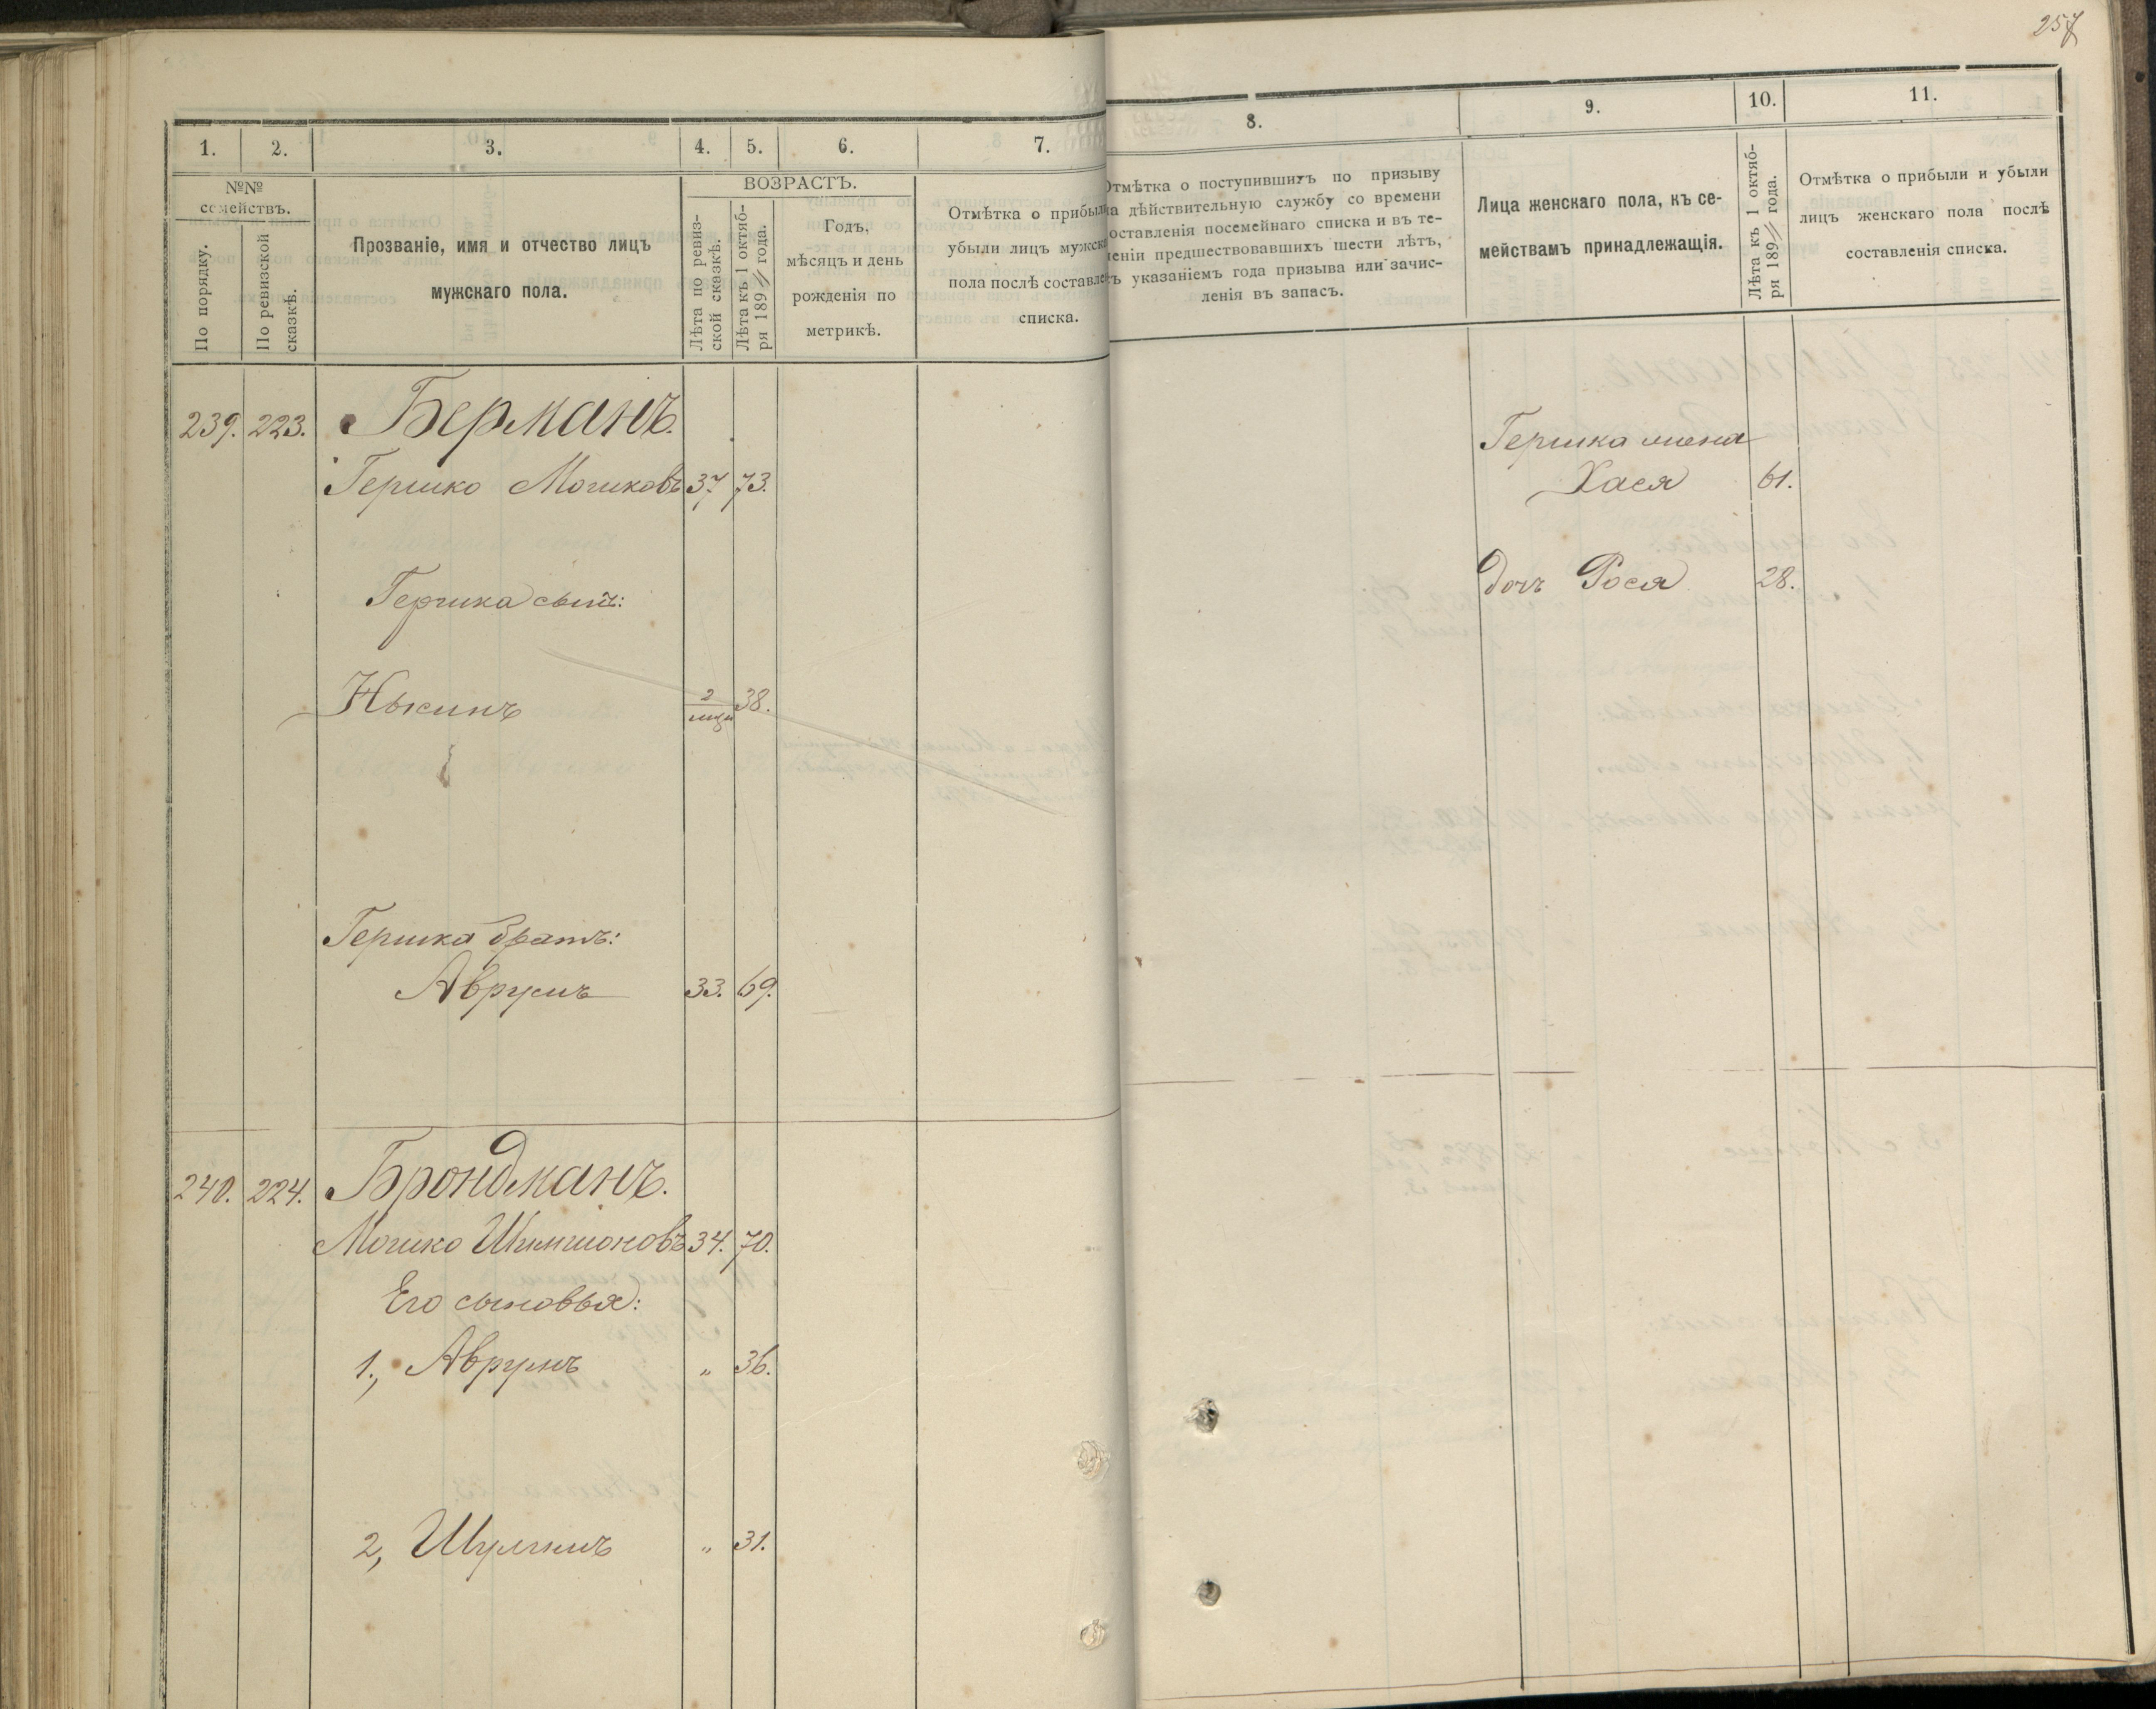 257
1. 2. 3. 4. 5. 6. 7. 8. 9. 10. 11.
№№ семействъ.
По порядку.
По ревизской сказкѣ.
Прозваніе, имя и отчество лицъ
мужскаго пола.
ВОЗРАСТЪ.
Лѣта по ревиз-
ской сказкѣ.
Лѣта къ 1 октяб-
ря 189 года.
Годъ,
мѣсяцъ и день
рожденія по
метрикѣ.
Отмѣтка о прибыли
убыли лицъ мужска
пола послѣ составле
списка.
Отмѣтка о поступившихъ по призыву
на дѣйствительную службу со времени
составленія посемейнаго списка и въ те-
ченіи предшествовавшихъ шести лѣтъ,
съ указаніемъ года призыва или зачис-
ленія въ запасъ.
Лица женскаго пола, къ се-
мействамъ принадлежащія.
Лѣта къ 1 октяб-
ря 189 года.
Отмѣтка о прибыли и убыли
лицъ женскаго пола послѣ
составленія списка.
239. 223. Берманъ.
Гершко Мошковъ 37 73.
Гершка сынъ:
2 38.
Гершка братъ:
Аврумъ 33. 69.
Гершка жена
Хася 61.
дочь Рося 28.
240. 224. Бронdманъ.
Мошко Шимшоновъ 34. 70.
Его сыновья:
1., Аврумъ „ 36.
2, Шулимъ „ 31.